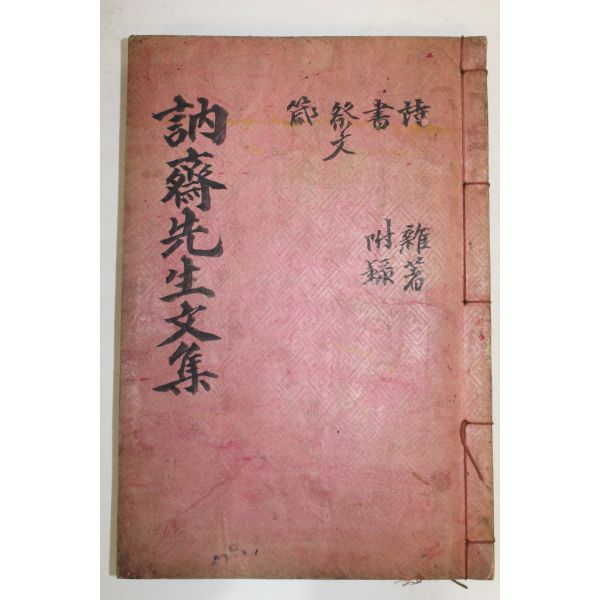 詩 雜著
書 附錄
祭文
訥齋先生文集